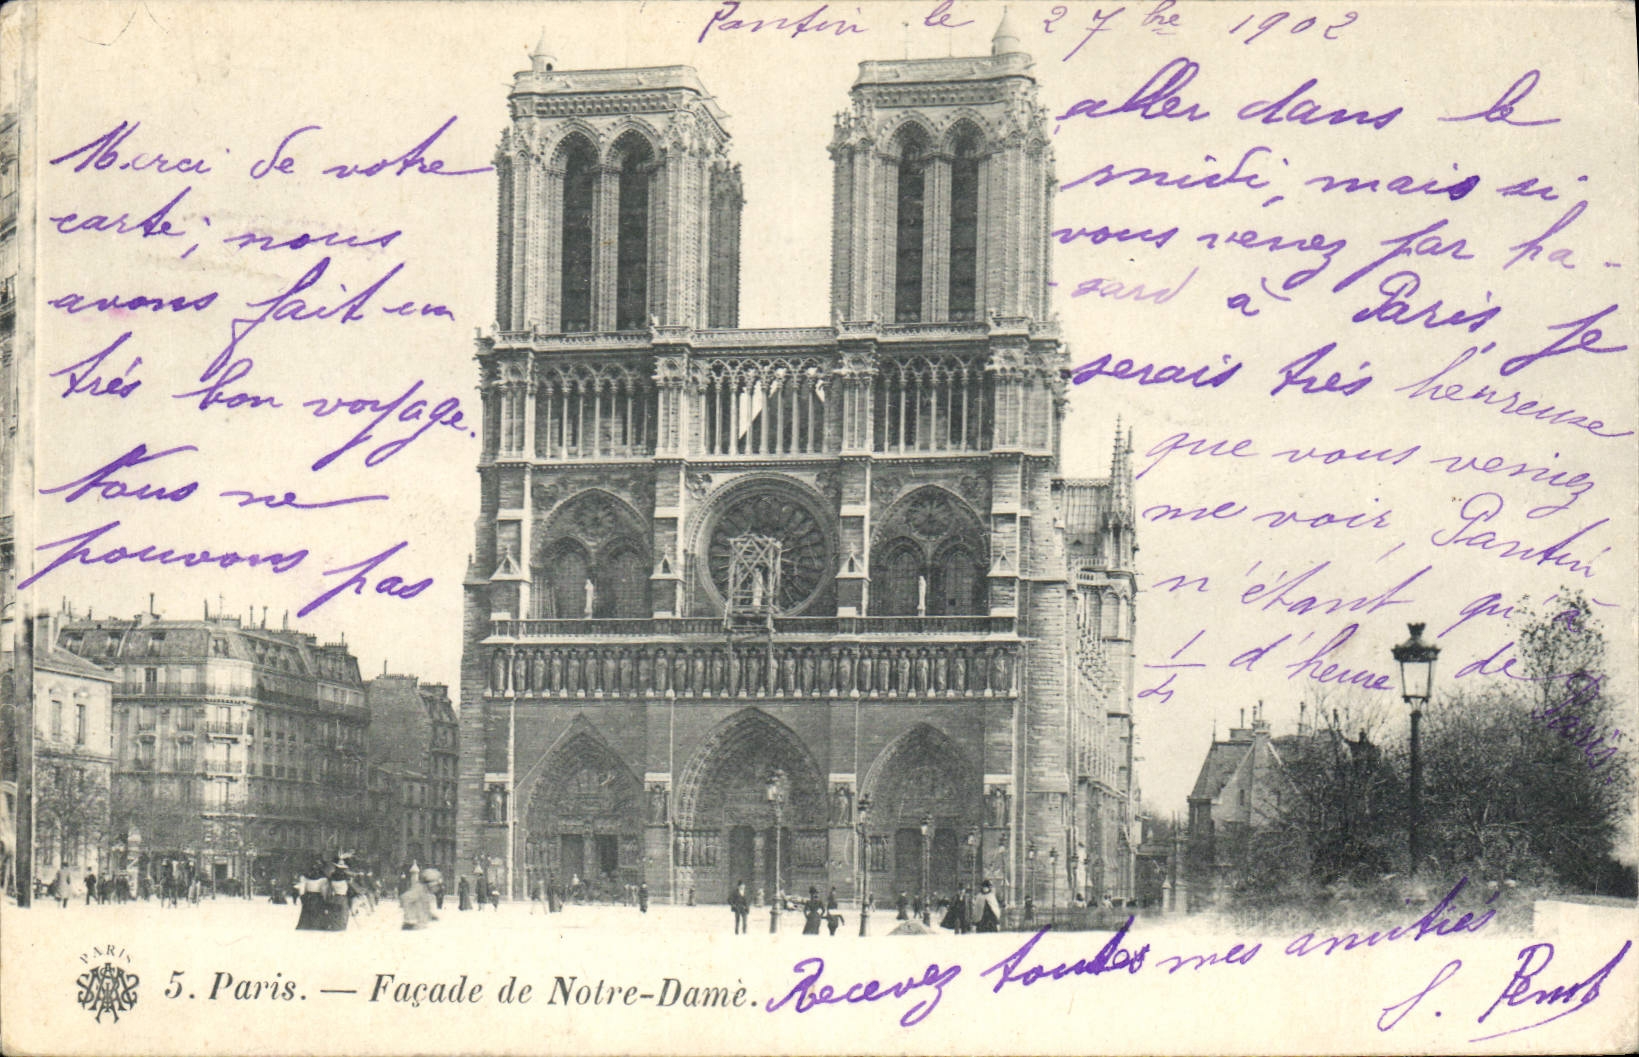 Pantin le 27bre 1902
Merci de votre
carte; nous
avons fait un
très bon voyage.
Nous ne
pouvons pas
aller dans le
midi, mais si
vous venez par ha-
-sard à Paris, je
serais très heureuse
que vous veniez
me voir, Pantin
n'étant qu'à
1/4 d'heure de
Paris.
Recevez toutes mes amitiés
PARIS
5. Paris. — Façade de Notre-Dame.